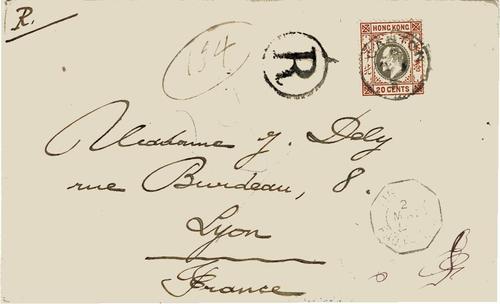 R.
154
R
HONG KONG
20 CENTS
Madame J. Dely
rue Burdeau, 8.
Lyon
France
2